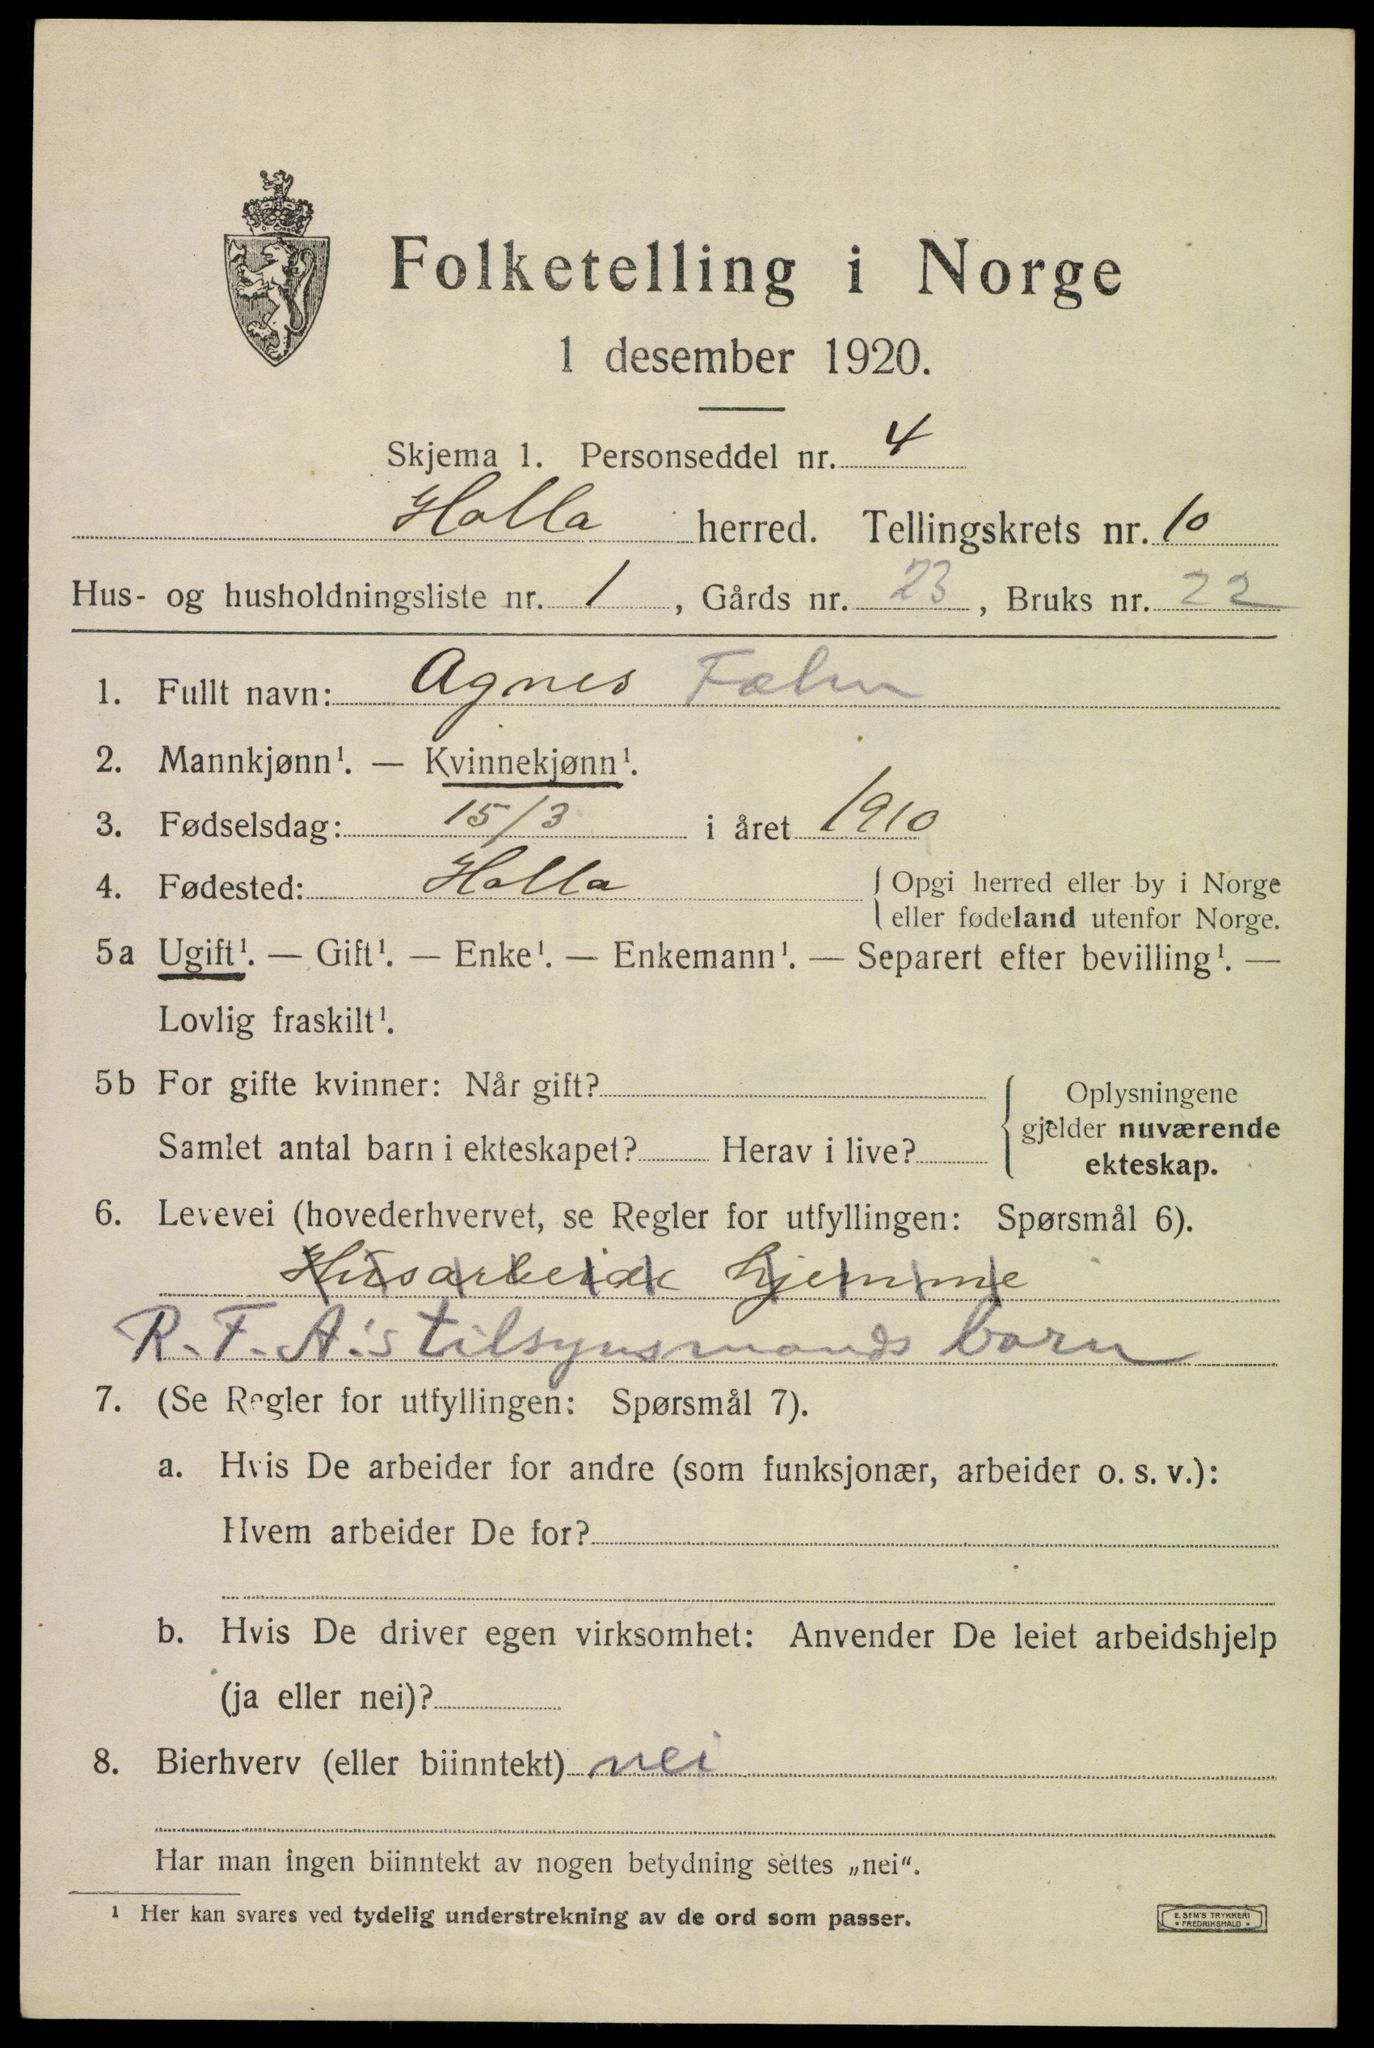 Folketelling i Norge
1 desember 1920.
Skjema 1. Personseddel nr. 4
Holla herred. Tellingskrets nr. 10
Hus- og husholdningsliste nr. 1, Gårds nr. 23, Bruks nr. 22
1. Fullt navn: Agnes
2. Mannkjønn¹. — Kvinnekjønn¹.
3. Fødselsdag: 15/3 i året 1910
4. Fødested: Holla { Opgi herred eller by i Norge
eller fødeland utenfor Norge.
5a Ugift¹. — Gift¹. — Enke¹. — Enkemann¹. — Separert efter bevilling¹. —
Lovlig fraskilt¹.
5b For gifte kvinner: Når gift?
Samlet antal barn i ekteskapet? Herav i live?
{ Oplysningene
gjelder nuværende
ekteskap.
6. Levevei (hovederhvervet, se Regler for utfyllingen: Spørsmål 6).
Husarbeide hjemme
R.F.A.'s tilsynsmands barn
7. (Se Regler for utfyllingen: Spørsmål 7).
a. Hvis De arbeider for andre (som funksjonær, arbeider o. s. v.):
Hvem arbeider De for?
b. Hvis De driver egen virksomhet: Anvender De leiet arbeidshjelp
(ja eller nei)?
8. Bierhverv (eller biinntekt) nei
Har man ingen biinntekt av nogen betydning settes „nei“.
¹ Her kan svares ved tydelig understrekning av de ord som passer.
E. SEM'S TRYKKERI
• FREDRIKSHALD •